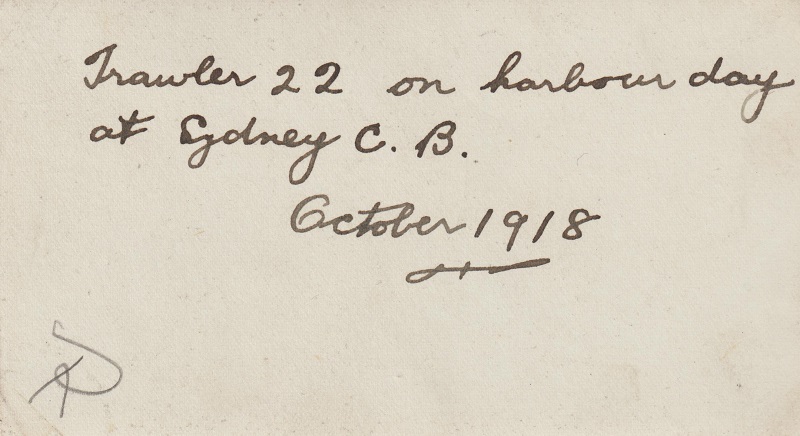 Trawler 22 on harbour day
at Sydney C. B.
October 1918